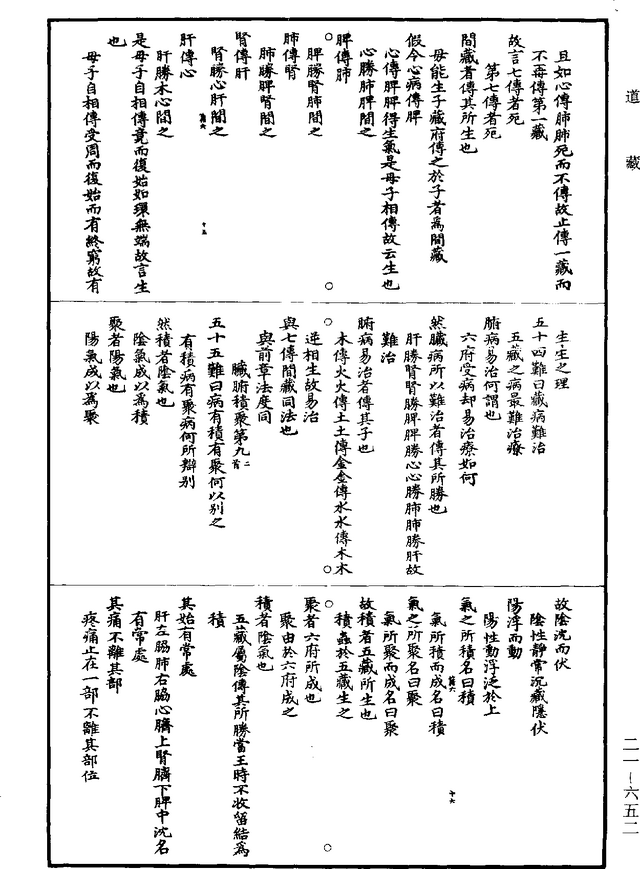 道藏
且如心傳肺肺死而不傳故止傳一藏而
不再傳第一藏
故言七傳者死
第七傳者死
間藏者傳其所生也
母能生子藏府傳之於子者爲間藏
假令心病傳脾
心傳脾脾得生氣是母子相傳故云生也
心勝肺脾間之
脾傳肺
脾勝腎肺間之
肺傳腎
肺勝脾腎間之
腎傳肝
腎勝心肝間之
十五
肝傳心
肝勝木心間之
是母子自相傳竟而復始如環無端故言生
也
母子自相傳受周而復始而有終窮故有
生生之理
五十四難曰藏病難治
五藏之病最難治療
腑病易治何謂也
六府受病却易治療如何
然臟病所以難治者傳其所勝也
肝勝腎腎勝脾脾勝心心勝肺肺勝肝故
難治
腑病易治者傳其子也
木傳火火傳土土傳金金傳水水傳木木
逆相生故易治
與七傳間藏同法也
與前章法度同
臟腑積聚第九二首
五十五難曰病有積有聚何以別之
有積病有聚病何所辯別
然積者陰氣也
陰氣成以爲積
聚者陽氣也
陽氣成以爲聚
故陰沈而伏
陰性靜常沉藏隱伏
陽浮而動
陽性動浮泛於上
氣之所積名曰積
氣所積而成名曰積
十六
氣之所聚名曰聚
氣所聚而成名曰聚
故積者五藏所生也
積蟲於五藏生之
聚者六府所成也
聚由於六府成之
積者陰氣也
五藏屬陰傳其所勝當王時不收留結爲
積
其始有常處
肝左脇肺右脇心臍上腎臍下脾中沈名
有常處
其痛不離其部
疼痛止在一部不離其部位
二一—六五二